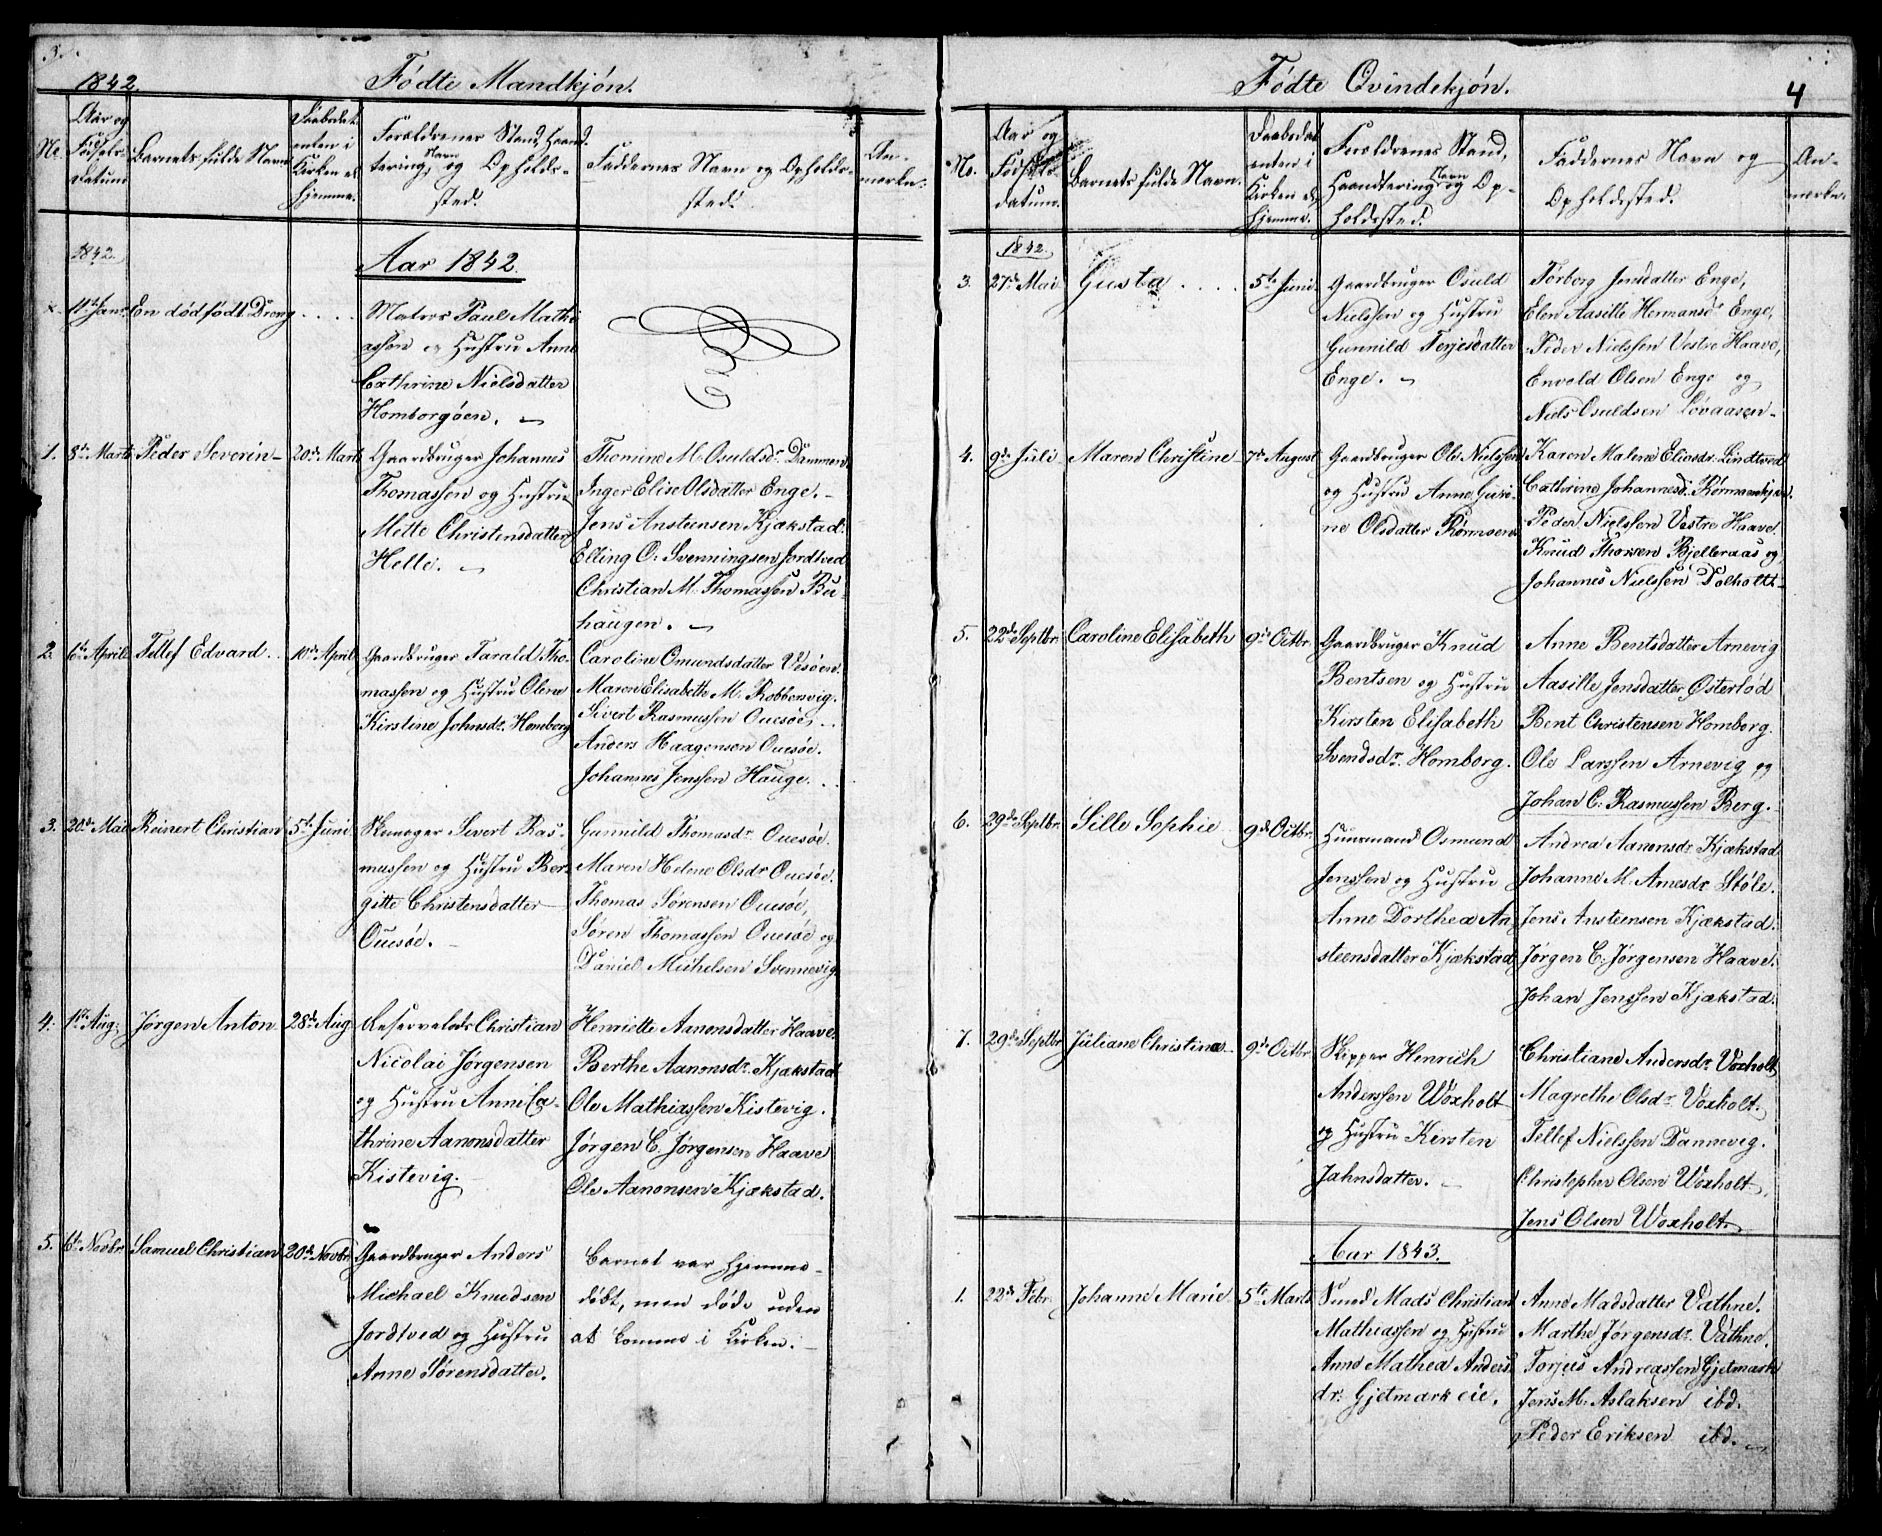 3.
1842.
Fødte Mandkjøn.
No.
Aar og
Fødsels-
datum
Barnets fulde Navn
Daabsdat.
enten i
Kirken el.
hjemme.
Forældrenes Stand, Haand-
tering, Navn og Opholds-
sted.
Faddernes Navn og Opholds-
sted.
An-
mærkn.
1842.
Aar 1842.
11te Janr. En dødfødt Dreng . . . .
Matros Paul Mathi
assen og Hustru Anne
Cathrine Nielsdatter
Homborgöen.
1. 8de Marts Peder Severin 20de Marts
Gaardbruger Johannes
Thomassen og Hustru
Mette Christensdatter
Helle.
Thomine M. Osuldsdr. Dammen
Inger Elise Olsdatter Enge.
Jens Ansteensen Kjækstad.
Elling O: Svenningsen Jordtved
Christian M. Thomassen Bu-
haugen.
2. 6te April Tellef Edvard . . 10de April
Gaardbruger Tarald Tho-
massen og Hustru Olene
Kirstine Johnsdr. Homborg
Caroline Omundsdatter Vesöen.
Maren Elisabeth M. Kobbervig.
Sivert Rasmussen Ouesöe, . .
Anders Haagensen Ouesöe.
Johannes Jenssen Hauge. . .
3. 20de Mai Reinert Christian 5te Juni
Skomager Severt Ras-
mussen og Hustru Ber-
gitte Christensdatter
Ouesöe.
Gunnild Thomasdr. Ouesöe.
Maren Helene Olsdr Ouesöe.
Thomas Sørensen Ouesöe,
Søren Thomassen Ouesöe og
Daniel Michelsen Svennevig
4. 1ste Aug. Jørgen Anton 28de Aug
Reservelods Christian
Nicolai Jørgensen
og Hustru Anne Ca-
thrine Aanonsdatter
Kistevig.
Henriette Aanonsdatter Haave.
Berthe Aanonsdr. Kjækstad
Ole Mathiassen Kistevig.
Jørgen C. Jørgensen Haave
Ole Aanonsen Kjækstad.
5. 6te Novbr. Samuel Christian 20de Novbr
Gaardbruger Anders
Michael Knudsen
Jordtved og Hustru
Anne Sørensdatter.
Barnet var hjemme-
døbt, men døde uden
at komme i Kirken.
Fødte Qvindekjøn.
4
No.
Aar og
Fødsels-
datum.
Barnets fulde Navn.
Daabsdat.
enten i
Kirken el.
hjemme.
Forældrenes Stand,
Haandtering, Navn og Op-
holdssted.
Faddernes Navn og
Opholdssted.
An-
mærkn.
1842.
3. 27de Mai Gusta . . . . 5te Juni
Gaardbruger Osuld
Nielssen og Hustru
Gunnild Terjesdatter
Enge.
Torborg Jensdatter Enge,
Elen Aasille Hermansdr Enge,
Peder Nielssen Vestre Haave,
Envold Olsen Enge og
Niels Osuldsen Løvaasen
4. 9de Juli Maren Christine 7de August
Gaardbruger Ole Nielssen
og Hustru Anne Guri-
ne Olsdatter Rørmoen
Karen Malene Eliesdr. Lindtved
Cathrine Johannesd.
Peder Nielssen Vestre Haave.
Knud Thorsen Bjelleraas og
Johannes Nielssen Dolholtt
5. 22de Septbr. Caroline Elisabeth 9de Octbr.
Gaardbruger Knud
Bentsen og Hustru
Kirsten Elisabeth
Svendsdr. Homborg.
Anne Bentsdatter Arnevig
Aasille Jensdatter Østerlød
Bent Christensen Homborg.
Ole Larssen Arnevig og
Johan C. Rasmussen Berg.
6. 29de Septbr. Sille Sophie 9de Octbr.
Huusmand Osmund
Jenssen og Hustru
Anne Dorthea An
steensdatter Kjækstad
Andrea Aanonsdr. Kjækstad
Johanne M. Arnesdr Støle.
Jens Ansteensen Kjækstad.
Jørgen C. Jørgensen Haave.
Johan Jenssen Kjækstad.
7. 29de Septbr Juliane Christina 9de Octbr.
Skipper Henrich
Anderssen Woxholt
og Hustru Kirsten
Jahnsdatter.
Christiane Andersdr. Voxholt
Magrethe Olsdr. Voxholt.
Tellef Nielssen Dannevig.
Christopher Olsen Woxholt.
Jens Olsen Woxholt.
Aar 1843.
1. 22de Febr. Johanne Marie 5te Marts
Smed Mads Christian
Mathiassen og Hustru
Anne Mathea Anders
dr. Gjetmark eie.
Anne Madsdatter Vathne.
Marthe Jørgensdr. Vathne.
Torjus Andreassen Gjetmark
Jens M. Aslaksen ibd.
Peder Eriksen ibd.